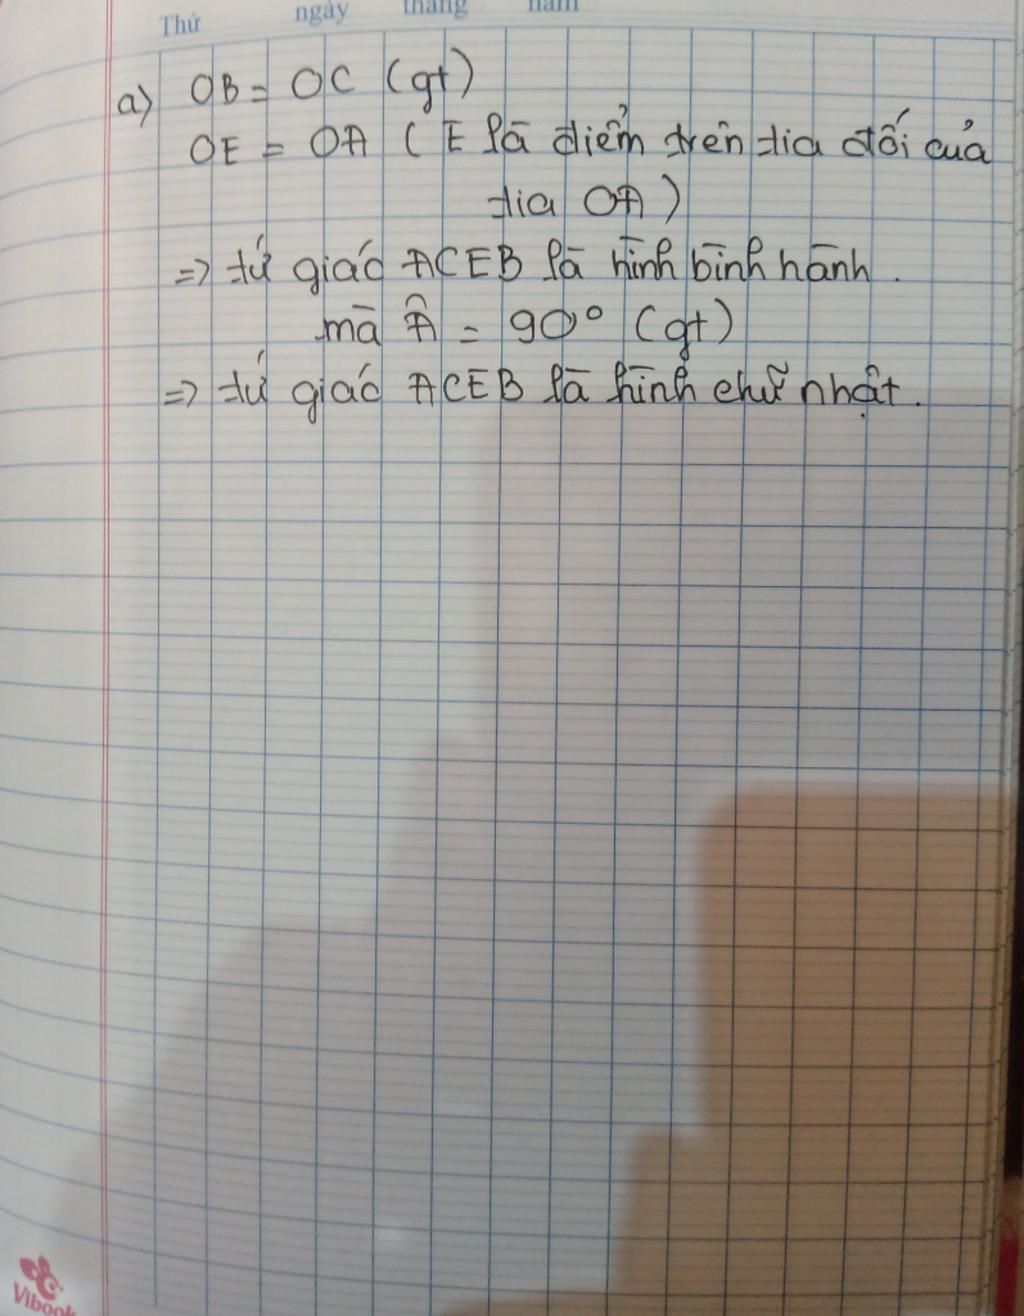 Thứ ngày tháng năm
a) OB = OC (gt)
OE = OA ( E là điểm trên tia đối của
tia OA )
=> tứ giác ACEB là hình bình hành .
mà Â = 90° (gt)
=> tứ giác ACEB là hình chữ nhật .
Vibook